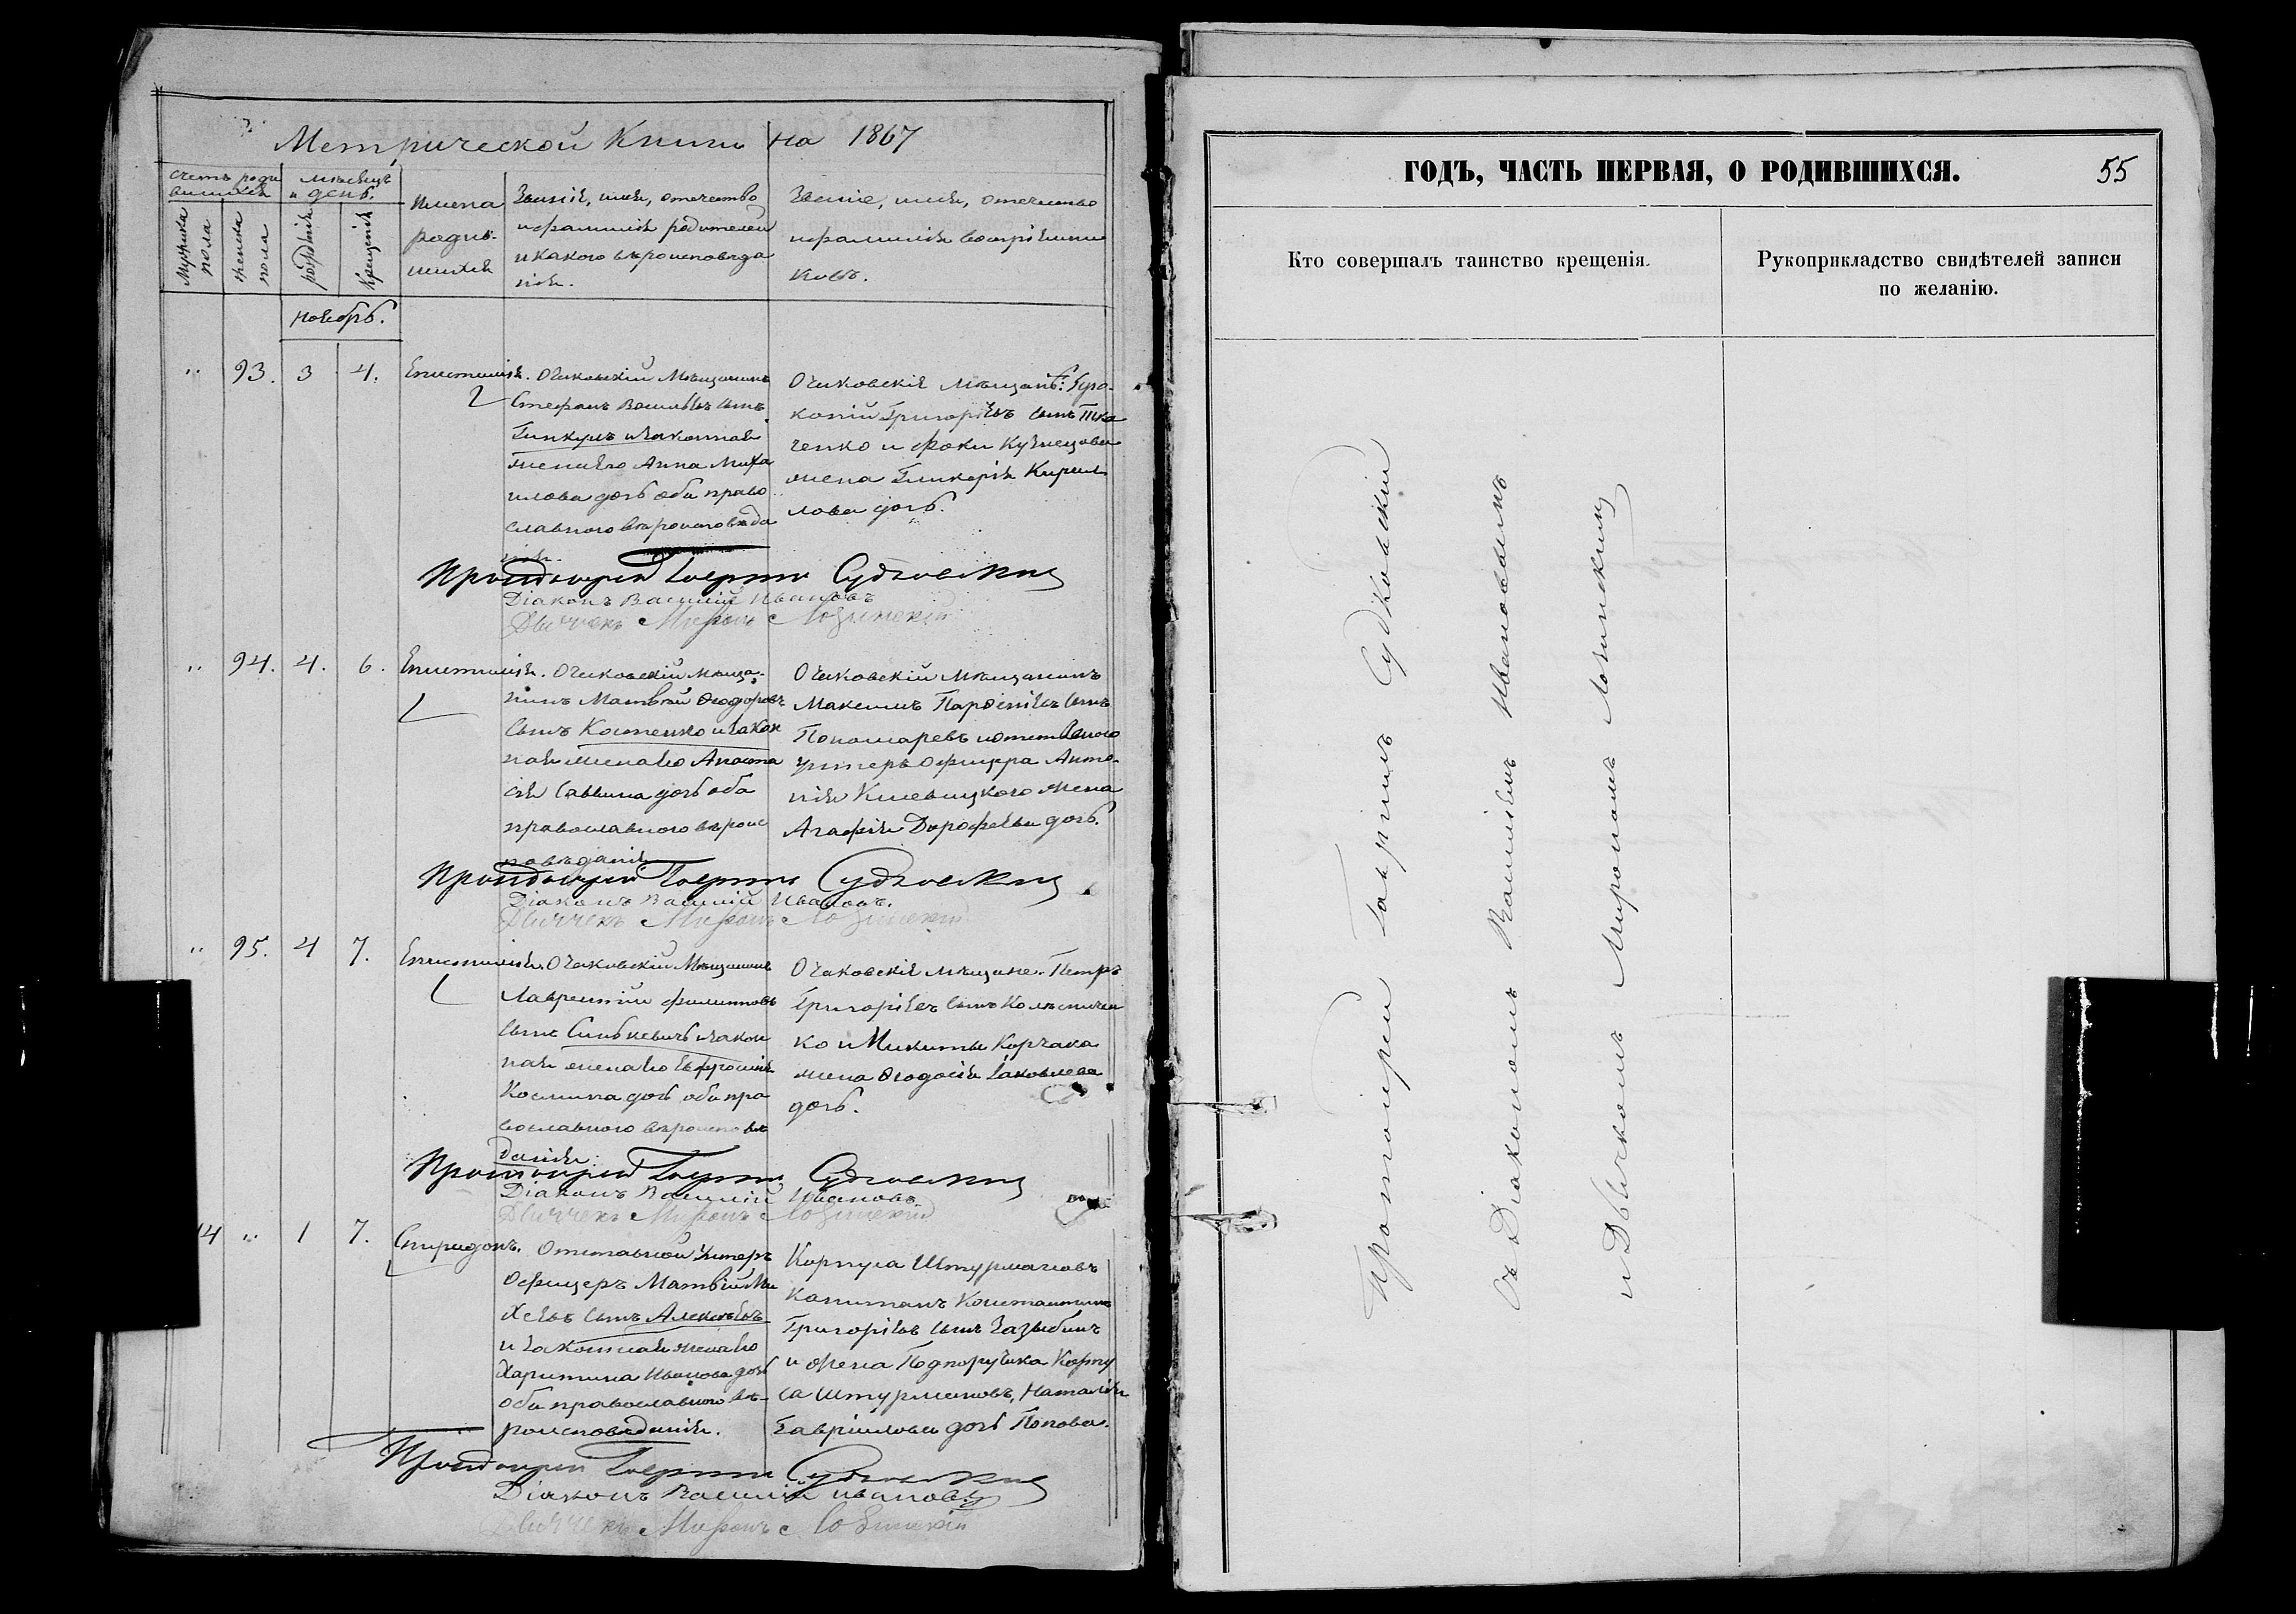 Метрической Книги на 1867
счетъ роди
вшихся
мѣсяцъ
и день.
Мужеска
пола
женска
пола
рожденія
крещенія
Имена
родив-
шихся
Званіе, имя, отечество
и фамилія родителей
и какого вѣроисповѣда
нія.
Званіе, имя, отечество
и фамилія воспріемни
ковъ.
Ноябрь.
" 93. 3 4. Епистимія.
Очаковскій Мѣщанинъ
Стефанъ Васильевъ сынъ
и законная
жена его Анна Миха
илова дочь оба право
славного вѣроисповѣда
нія.
Очаковскіе мѣщане:
Григоріевъ сынъ Тка
ченко и Фоки Кузнецова
жена Гликерія Кирил
лова дочь.
Протоіерей Гавріилъ Судковскій
Діаконъ Василій Ивановъ
Дьячекъ Миронъ Лозинскій
" 94. 4. 6. Епистимія.
Очаковскій мѣща-
нинъ Матвѣй Ѳеодоровъ
сынъ Костенко и закон
ная жена его Анаста
сія Саввина дочь оба
православного вѣроис
повѣданія
Очаковскій мѣщанинъ
Максимъ Парѳеніевъ сынъ
Пономаревъ и отставного
унтеръ офицера Анто-
нія жена
Агафія Дорофеева дочь.
Протоіерей Гавріилъ Судковскій
Діаконъ Василій Ивановъ.
Дьячекъ Миронъ Лозинскій
" 95. 4 7. Епистимія.
Очаковскій Мѣщанинъ
Лаврентій Филипповъ
сынъ Синькевичъ и закон
ная жена его Евфросинія
Космина дочь оба пра
вославного вѣроисповѣ
данія.
Очаковскіе мѣщане. Петръ
Григоріевъ сынъ Колѣсничен
ко и Никиты Корчака
жена Ѳеодосія Іаковлева
дочь.
Протоіерей Гавріилъ Судковскій
Діаконъ Василій Ивановъ
Дьячекъ Миронъ Лозинскій
14 " 1 7. Спиридонъ.
Отставной Унтеръ
Офицеръ Матвѣй Ми
хеевъ сынъ Алексѣевъ
и законная жена его
Харитина Иванова дочь
оба православного вѣ-
роисповѣданія.
Корпуса Штурмановъ
Капитанъ Константинъ
Григоріевъ сынъ Зазыбинъ
и жена Подпоручика Корпу
са Штурмановъ, Наталія
Гавріилова дочь Попова.
Протоіерей Гавріилъ Судковскій
Діаконъ Василій Ивановъ
Дьячекъ Миронъ Лозинскій
ГОДЪ, ЧАСТЬ ПЕРВАЯ, О РОДИВШИХСЯ.
55
Кто совершалъ таинство крещенія.
Рукоприкладство свидѣтелей записи
по желанію.
Протоіерей Гавріилъ Судковскій
съ Діакономъ Василіемъ Ивановымъ
и Дьячкомъ Мирономъ Лозинскимъ